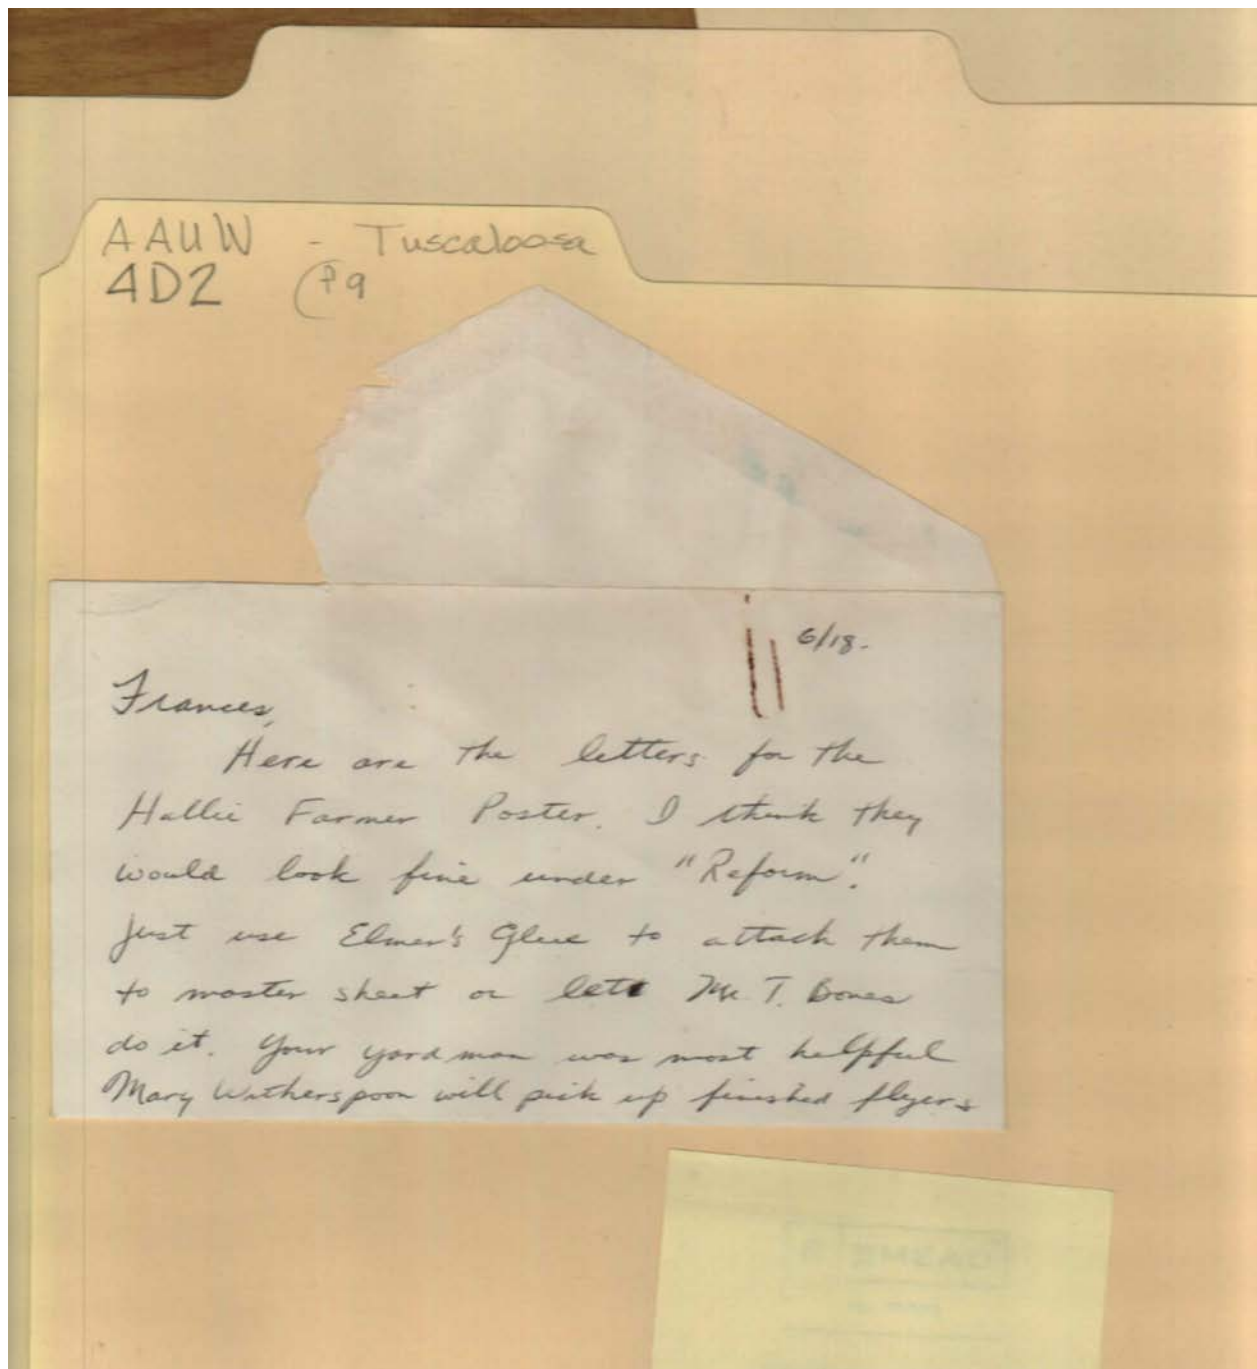 AAUW - Tuscaloosa
4D2 (P9
6/18.
Frances,
Here are the letters for the
Hallie Farmer Poster. I think they
would look fine under "Reform".
Just use Elmer's Glue to attach them
to master sheet or let Mr. T. Bones
do it. Your yardman was most helpful
Mary Witherspoon will pick up finished flyers